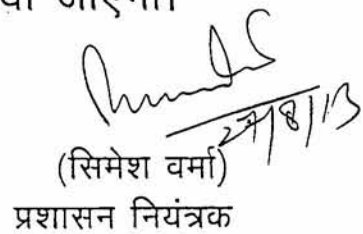 जाएगा।
27/8/13
(सिमेश वर्मा)
प्रशासन नियंत्रक